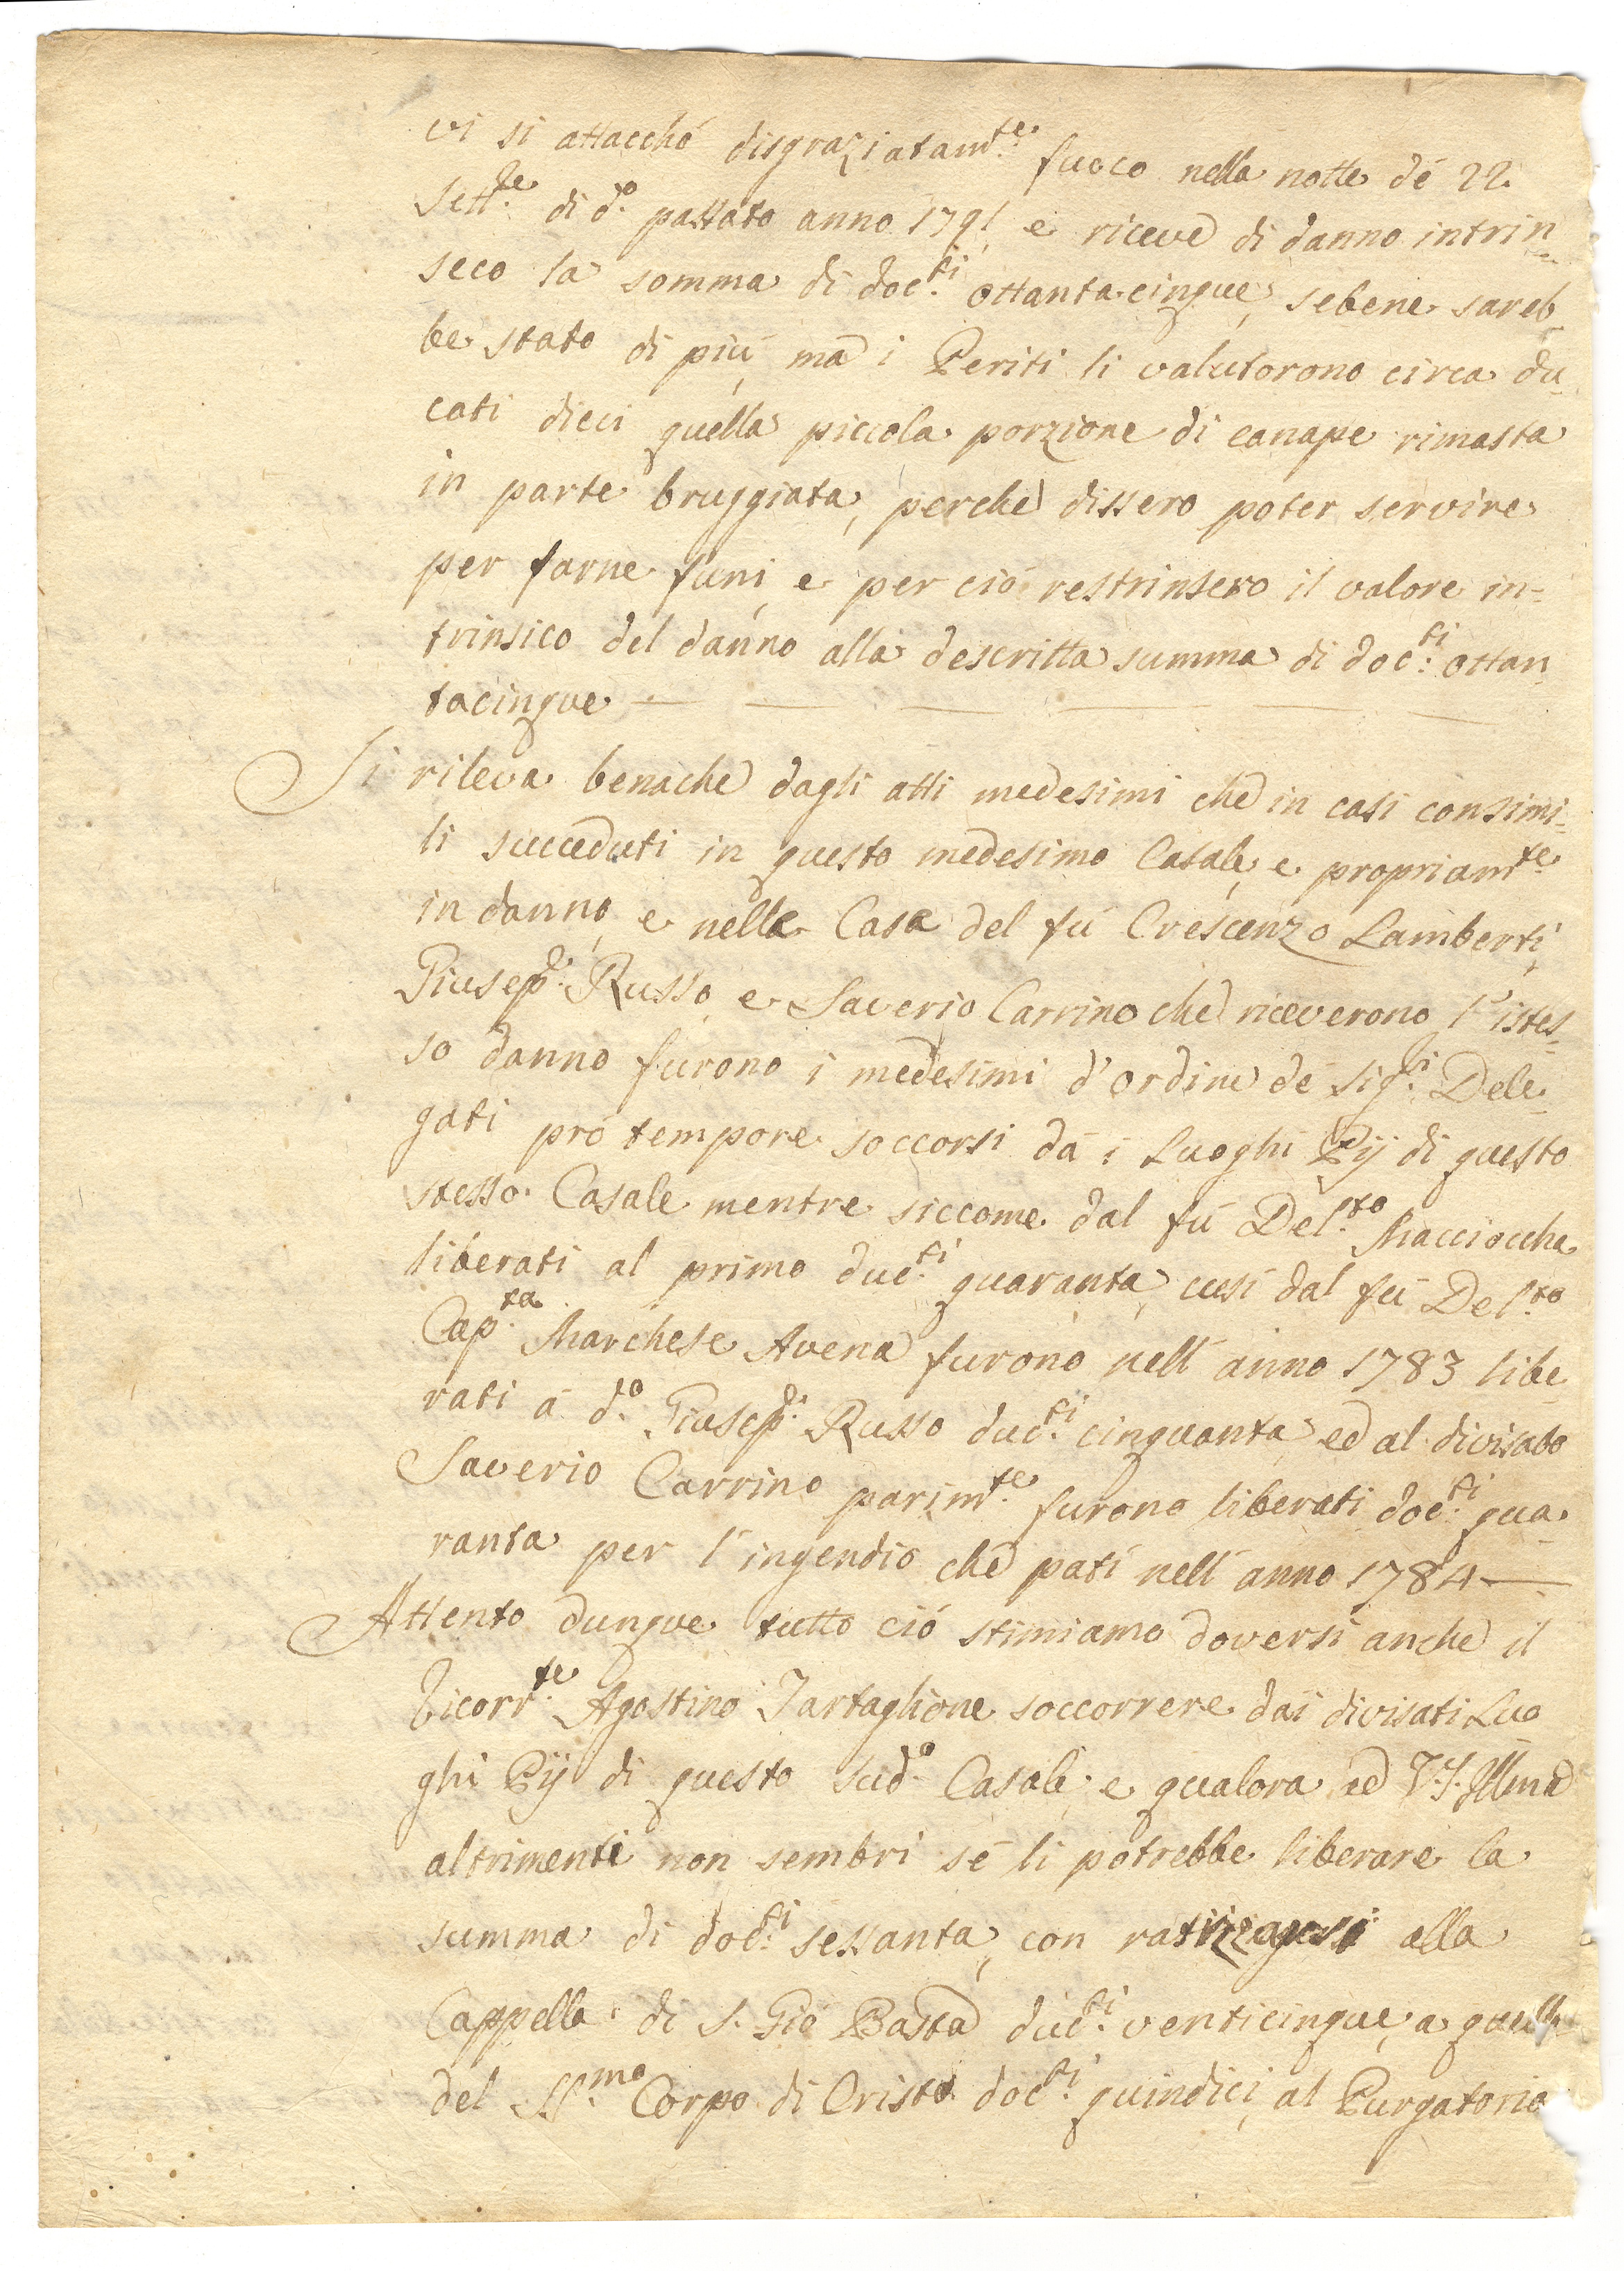 vi si attacchó disgraziatam.te fuoco nella notte dé 22
Sett.re di d.o passato anno 1791, e riceve di danno intrin
seco la somma di doc.ti ottantacinque, sebene sareb
be stato di piú, ma i Periti li valutorono circa du
cati dieci quella piccola porzione di canape rimasta
in parte bruggiata, perche dissero poter servire
per farne funi, e per ció restrinsero il valore in=
trinsico del danno alla descritta summa di doc.ti ottan
tacinque
Si rileva benache dagli atti medesimi che in casi consimi=
li succeduti in questo medesimo Casale, e propriam.te
in danno, e nella Casa del fú Crescenzo Lamberti,
Giusep.e Russo, e Saverio Carrino che riceverono l'istes=
so danno furono i medesimi d'ordine dé Sig.ri Dele=
gati pró tempore soccorsi dá i Luoghi Pij di questo
stesso Casale mentre siccome dal fú Del.to Maccioccha
liberati al primo duc.ti quaranta, cusí dal fú Del.to
Cap.ta Marchese Avena furono nell'anno 1783 libe
rati á d.o Giusep.e Russo duc.ti cinquanta, ed al divisato
Saverio Carrino parim.te furono liberati doc.ti qua=
ranta per l'ingendio che patí nell'anno 1784
Attento dunque tutto ció stimiamo doversi anche il
Ricorr.te Agostino Tartaglione soccorrere dai divisati Luo
ghi Pij di questo sud.o Casale, e qualora ad V.S. Illma
altrimenti non sembri se li potrebbe liberare la
summa di doc.ti sessanta, con alla
Cappella di S. Gio Batta duc.ti venticinque, a quella
del SS.mo Corpo di Cristo doc.ti quindici, al Purgatorio